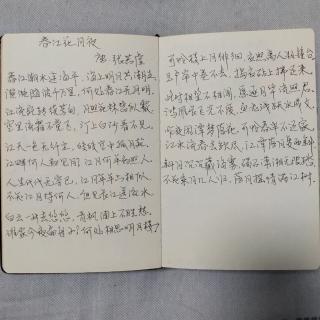 春江花月夜
唐 张若虚
春江潮水连海平，海上明月共潮生
滟滟随波千万里，何处春江无月明
江流宛转绕芳甸，月照花林皆似霰
空里流霜不觉飞，汀上白沙看不见
江天一色无纤尘，皎皎空中孤月轮
江畔何人初见月？江月何年初照人
人生代代无穷已，江月年年只相似
不知江月待何人，但见长江送流水
白云一片去悠悠，青枫浦上不胜愁
谁家今夜扁舟子？何处相思明月楼？
可怜楼上月徘徊，应照离人妆镜台
玉户帘中卷不去，捣衣砧上拂还来
此时相望不相闻，愿逐月华流照君
鸿雁长飞光不度，鱼龙潜跃水成文
昨夜闲潭梦落花，可怜春半不还家
江水流春去欲尽，江潭落月复西斜
斜月沉沉藏海雾，碣石潇湘无限路
不知乘月几人归，落月摇情满江树